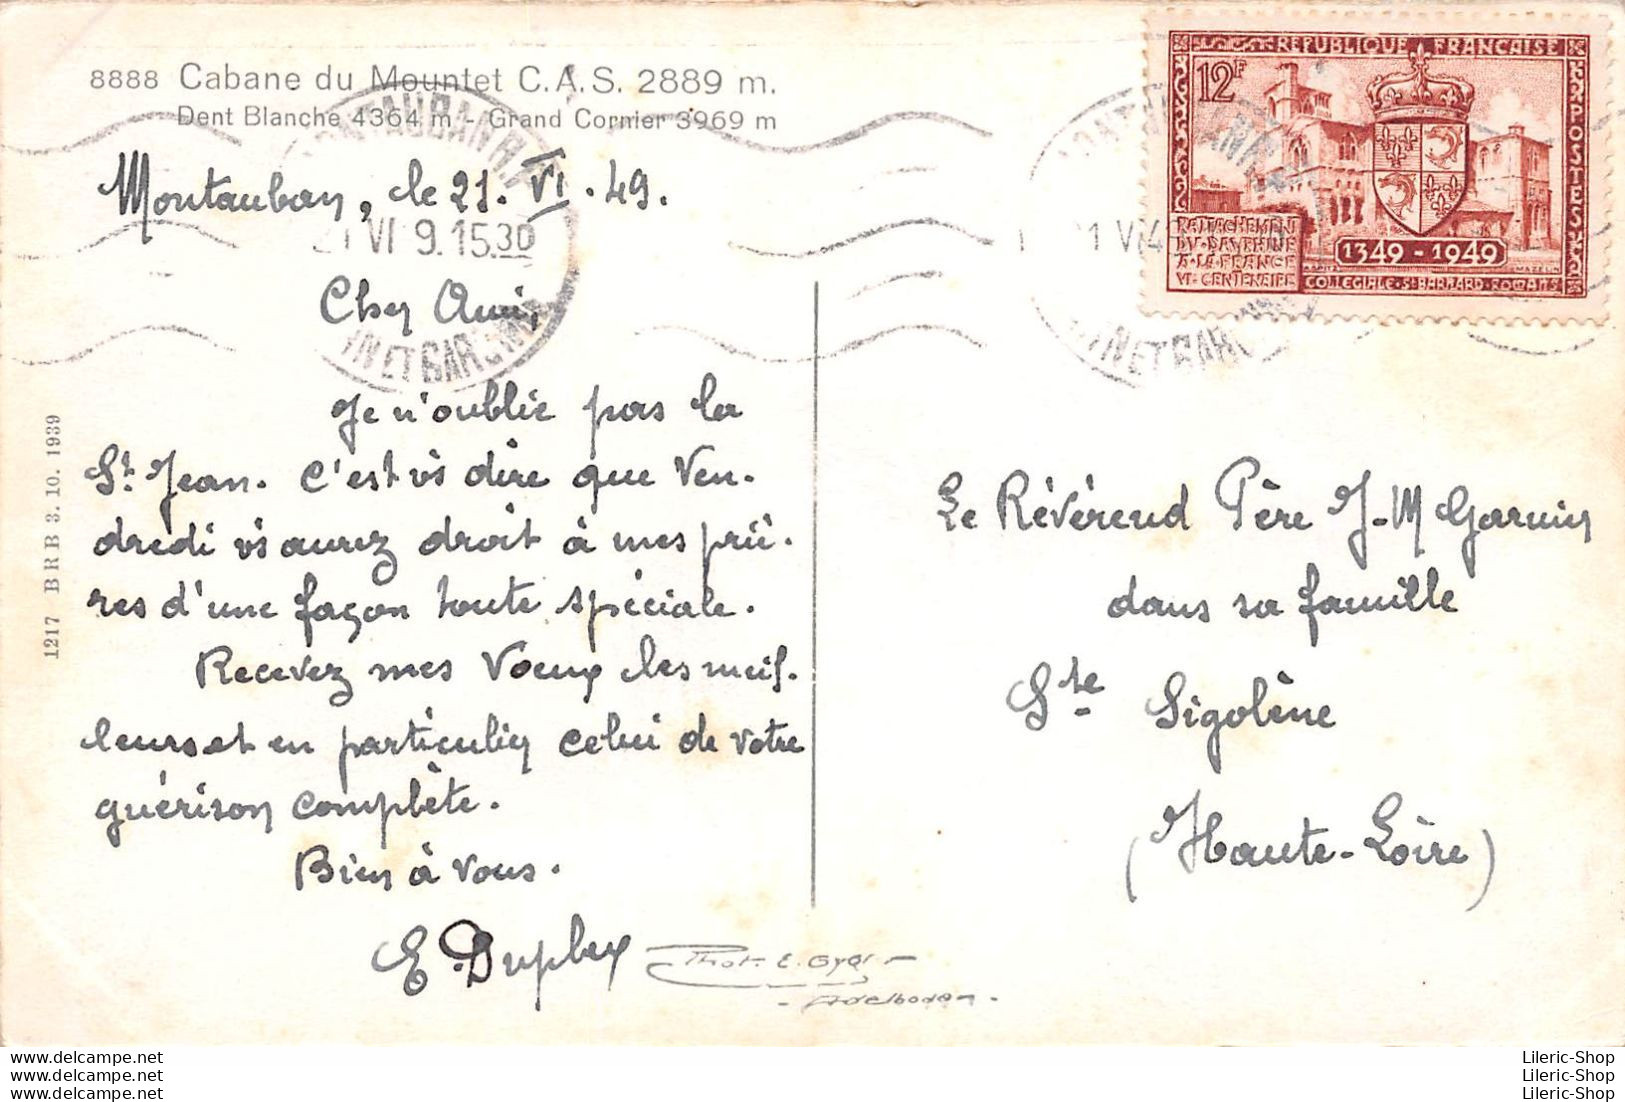 8888 Cabane du Mountet C.A.S. 2889 m.
Dent Blanche 4364 m - Grand Cornier 3969 m
Montauban, le 21. VI. 49.
VI 9.15 30
Cher Ami,
Je n'oublie pas la
St Jean. C'est vs dire que Ven-
dredi vs aurez droit à mes priè-
res d'une façon toute spéciale.
Recevez mes Voeux les meil-
leurs et en particulier celui de votre
guérison complète.
Bien à vous.
E. Dupley
Phot. E. Gyger
- Adelboden -
1217 BRB 3.10.1939
RÉPUBLIQUE FRANÇAISE
12F
POSTES
RATTACHEMENT
DU DAUPHINÉ
A LA FRANCE
VIe CENTENAIRE
1349 - 1949
MAZELIN
COLLÉGIALE St BARNARD ROMANS
TARN ET GARONNE
Le Révérend Père J-M Garnier
dans sa famille
Ste Sigolène
(Haute-Loire)
delcampe.net
delcampe.net
delcampe.net
Lileric-Shop
Lileric-Shop
Lileric-Shop